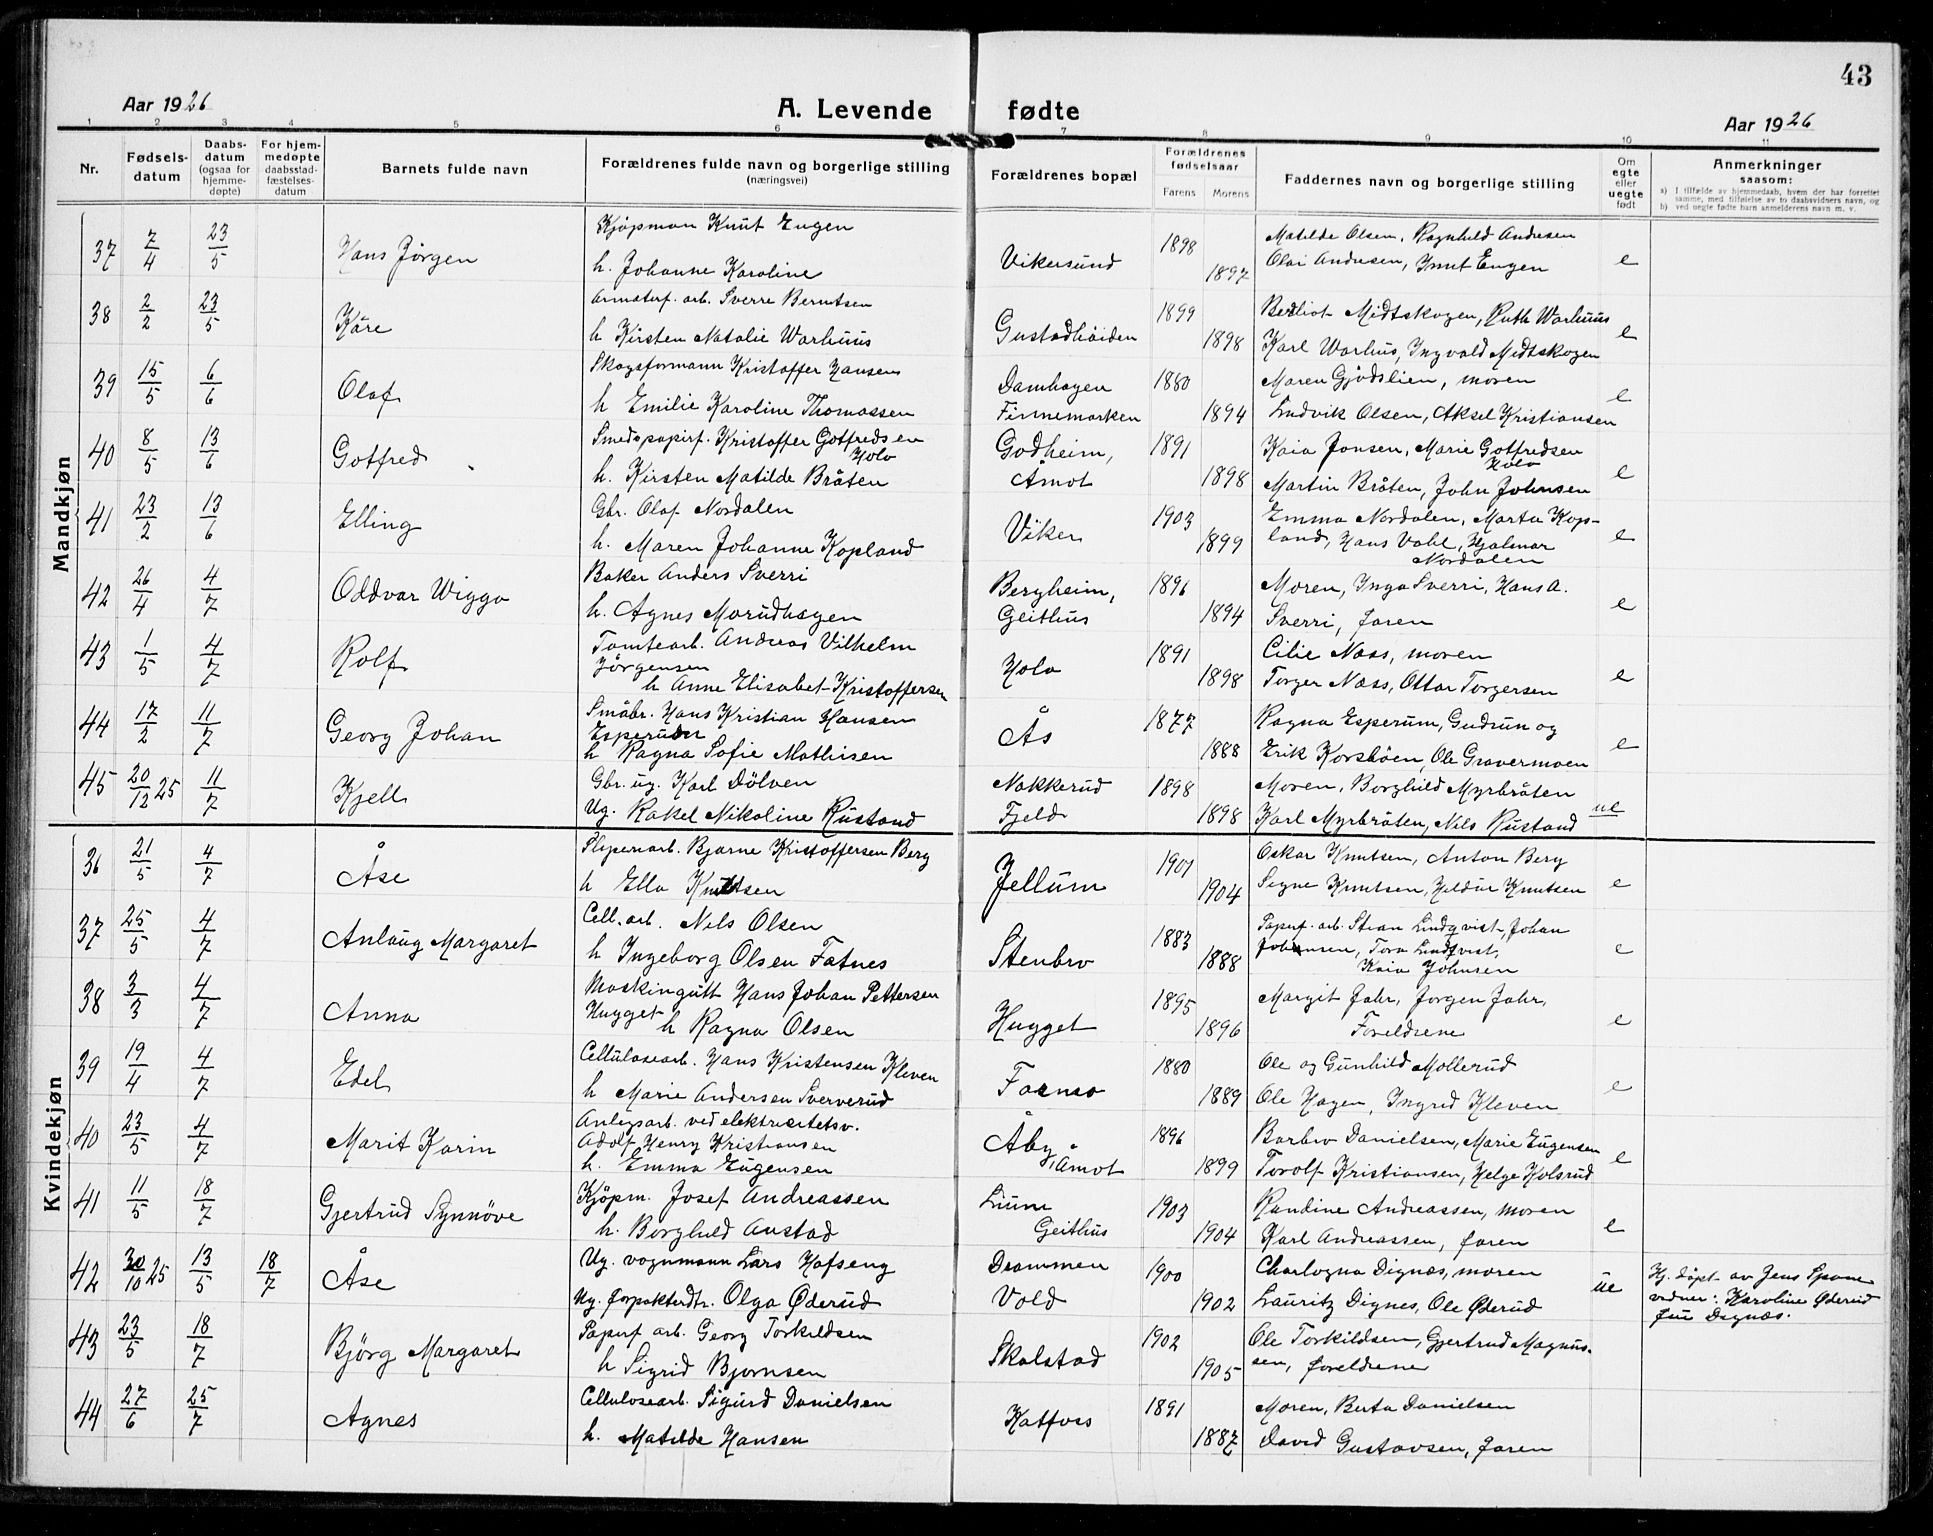 43
Aar 1926
A. Levende fødte
Aar 1926
1 2 3 4 5 6 7 8 9 10 11
Nr.
Fødsels-
datum
Daabs-
datum
(ogsaa for
hjemme-
døpte)
For hjem-
medøpte
daabsstad-
fæstelses-
datum
Barnets fulde navn
Forældrenes fulde navn og borgerlige stilling
(næringsvei)
Forældrenes bopæl
Forældrenes
fødselsaar
Farens Morens
Faddernes navn og borgerlige stilling
Om
egte
eller
uegte
født
Anmerkninger
saasom:
a) I tilfælde av hjemmedaab, hvem der har forrettet
samme, med tilføielse av to daabsvidners navn, og
b) ved uegte fødte barn anmelderens navn m. v.
Mandkjøn
37 7/4 23/5 Hans Jørgen
Kjøpman Knut Eugen
h. Johanne Karoline
Vikersund 1898 1897
Matilde Olsen, Ragnhild Andresen
Olai Andresen, Knut Eugen e
38 2/2 23/5 Kåre
Armaturf. arb. Sverre Berntsen
h Kirsten Natalie Warhuus
Gustadhöiden 1899 1898
Bergliot Midtskogen, Ruth Warhuus
Karl Warhus, Ingvald Midtskogen e
39 15/5 6/6 Olaf
Skogsformann Kristoffer Hansen
h Emilie Karoline Thomassen
Damhagen
Finnemarken 1880 1894
Maren Gjödslien, moren
Ludvik Olsen, Aksel Kristiansen e
40 8/5 13/6 Gotfred
Smed papirf. Kristoffer Gotfredsen
Holo
h. Kirsten Matilde Bråten
Godheim,
Åmot 1891 1898
Kaia Jonsen, Marie Gotfredsen
Holo
Martin Bråten, John Johnsen e
41 23/2 13/6 Elling
Gbr. Olaf Nordalen
h. Maren Johanne Kopland
Viker 1903 1899
Emma Nordalen, Marta Kop-
land, Hans Vahl, Hjalmar
Nordalen e
42 26/4 4/7 Oddvar Wiggo
Baker Anders Sverri
h. Agnes Morudhagen
Bergheim,
Geithus 1896 1894
Moren, Inga Sverri, Hans A.
Sverri, faren e
43 1/5 4/7 Rolf
Tomtearb. Andreas Vilhelm
Jörgensen
h Anne Elisabet Kristoffersen
Holo 1891 1898
Cilie Næss, moren
Torger Næss, Ottar Torgersen e
44 17/2 11/7 Georg Johan
Småbr. Hans Kristian Hansen
Esperuder
h Ragna Sofie Mathisen
Ås 1877 1888
Ragna Esperum, Gudrun og
Erik Korsböen, Ole Gravermoen e
45 20/12 25 11/7 Kjell
Gbr. ug. Karl Dölven
Ug. Rakel Nikoline Rustand
Nakkerud
Fjeld 1898 1898
Moren, Borghild Myrbråten
Karl Myrbråten, Nils Rustand ue
Kvindekjøn
36 21/5 4/7 Åse
Sliperiarb. Bjarne Kristoffersen Berg
h Ella Knutsen
Jellum 1901 1904
Oskar Knutsen, Anton Berg
Signe Knutsen, Heldur Knutsen e
37 25/5 4/7 Anlaug Margaret
Cell. arb. Nils Olsen
h Ingeborg Olsen Fatnes
Stenbro 1883 1888
Papirf. arb. Stian Lindqvist, Johan
Johansen, Tora Lindqvist,
Kaia Johnsen e
38 3/3 4/7 Anna
Maskingutt Hans Johan Pettersen
Hugget
h Ragna Olsen
Hugget 1895 1896
Margit Jahr, Jørgen Jahr,
Foreldrene e
39 19/4 4/7 Edel
Cellulosearb. Hans Kristensen Kleven
h Marie Andersen Sververud
Fosmo 1880 1889
Ole og Gunhild Mollerud
Ole Hagen, Ingrid Kleven e
40 23/5 4/7 Marit Karin
Anlegsarb. ved elektrisitetsv.
Adolf Henry Kristiansen
h. Emma Eugensen
Åby, Åmot 1896 1899
Barbro Danielsen, Marie Eugensen
Torolf Kristiansen, Helge Kolsrud e
41 11/5 18/7 Gjertrud Synnöve
Kjöpm. Josef Andreassen
h. Borghild Austad
Lium
Geithus 1903 1904
Randine Andreassen, moren
Karl Andreassen, faren e
42 30/10 25 13/5 18/7 Åse
Ug. vognmann Lars Hafseng
Ug. forpakterdtr. Olga Øderud
Drammen
Vold 1900 1902
Charlogna Dignæs, moren
Lauritz Dignes, Ole Øderud ue
Hj. döpt av Jens Spone
vidner: Karoline Øderud
fru Dignæs.
43 23/5 18/7 Björg Margaret
Papirf arb. Georg Torkildsen
h Sigrid Bjornsen
Skalstad 1902 1905
Ole Torkildsen, Gjertrud Magnus-
sen, foreldrene
44 27/6 25/7 Agnes
Cellulosearb. Sigurd Danielsen
h. Matilde Hansen
Katfoss 1891 1887
Moren, Berta Danielsen
David Gustavsen, faren